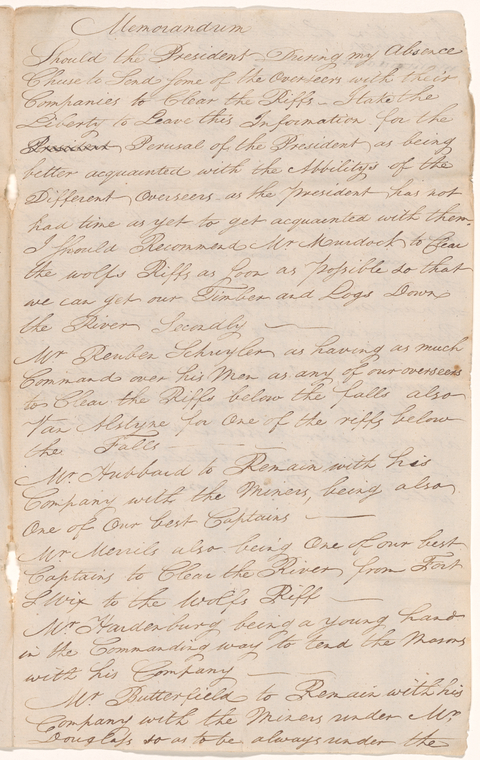 Memorandum
Should the President During my Absence
Chuse to Send some of the Overseers with their
Companies to Clear the Riffs - I take the
Liberty to Leave this Information for the
President Perusal of the President as being
better acquainted with the Abbility's of the
Different Overseers as the President has not
had time as yet to get acquainted with them.
I should Recommend Mr Murdock to Clear
the wolfs Riffs as soon as possible so that
we can get our Timber and Logs Down
the River Secondly —
Mr Reuben Schuyler as having as much
Command over his Men as any of our overseers
to Clear the Riffs below the falls also
Van Alstyne for One of the riffs below
the Falls — - -
Mr Hubbard to Remain with his
Company with the Miners, being also
One of Our best Captains —
Mr Merrils also being One of our best
Captains to Clear the River from Fort
to the Wolfs Riff —
Mr Hardenburg being a young hand
in the Commanding way to tend the Masons
with his Company —
Mr Butterfield to Remain with his
Company with the Miners under Mr
Douglass so as to be always under the